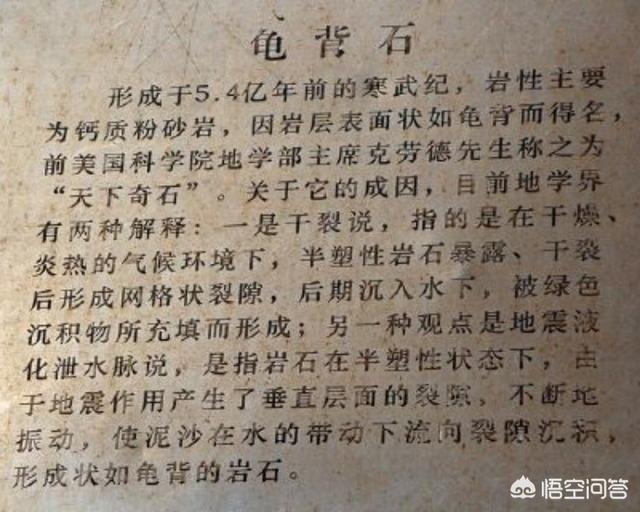 龟背石
形成于5.4亿年前的寒武纪，岩性主要
为钙质粉砂岩，因岩层表面状如龟背而得名，
前美国科学院地学部主席克劳德先生称之为
“天下奇石”。关于它的成因，目前地学界
有两种解释：一是干裂说，指的是在干燥、
炎热的气候环境下，半塑性岩石暴露、干裂
后形成网格状裂隙，后期沉入水下，被绿色
沉积物所充填而形成；另一种观点是地震液
化泄水脉说，是指岩石在半塑性状态下，由
于地震作用产生了垂直层面的裂隙，不断地
振动，使泥沙在水的带动下流向裂隙沉积，
形成状如龟背的岩石。
悟空问答